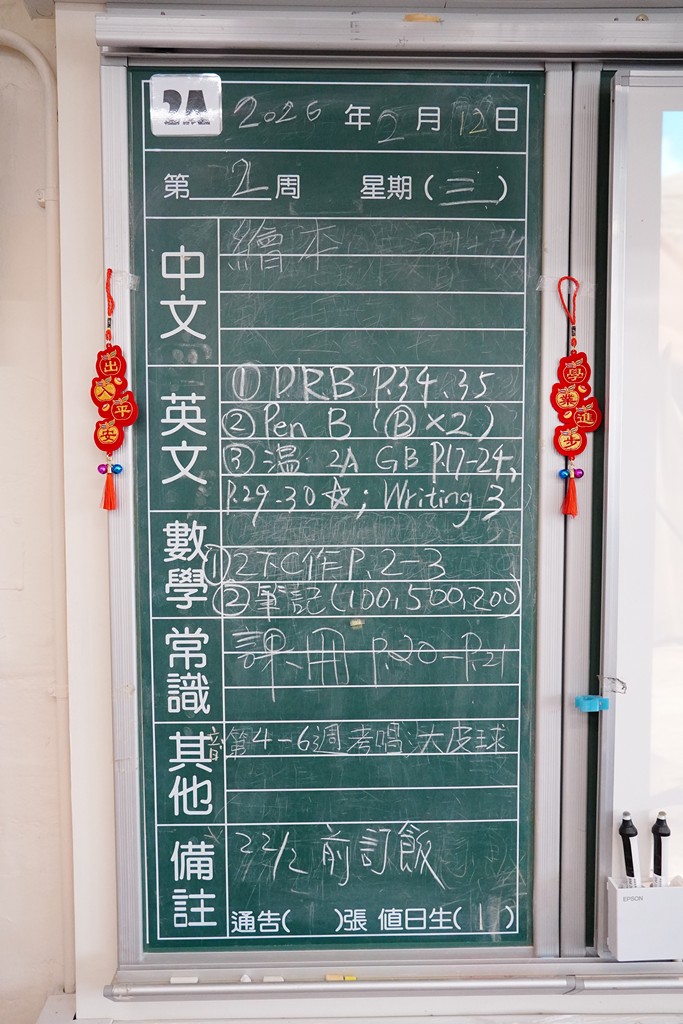 2A 2026年2月12日
第2周 星期(三)
中文
繪本
英文
① DRB P.34, 35
② Pen B (Ⓑ×2)
③ 溫 2A GB P.17-24,
P.29-30☆; Writing 3
數學
① 2下C作 P.2-3
② 筆記(100,500,200)
常識
課冊 P.20-P.21
其他
音 第4-6週考唱大皮球
備註
22/2 前訂飯
通告( )張 值日生( 1 )
出入平安
學業進步
EPSON